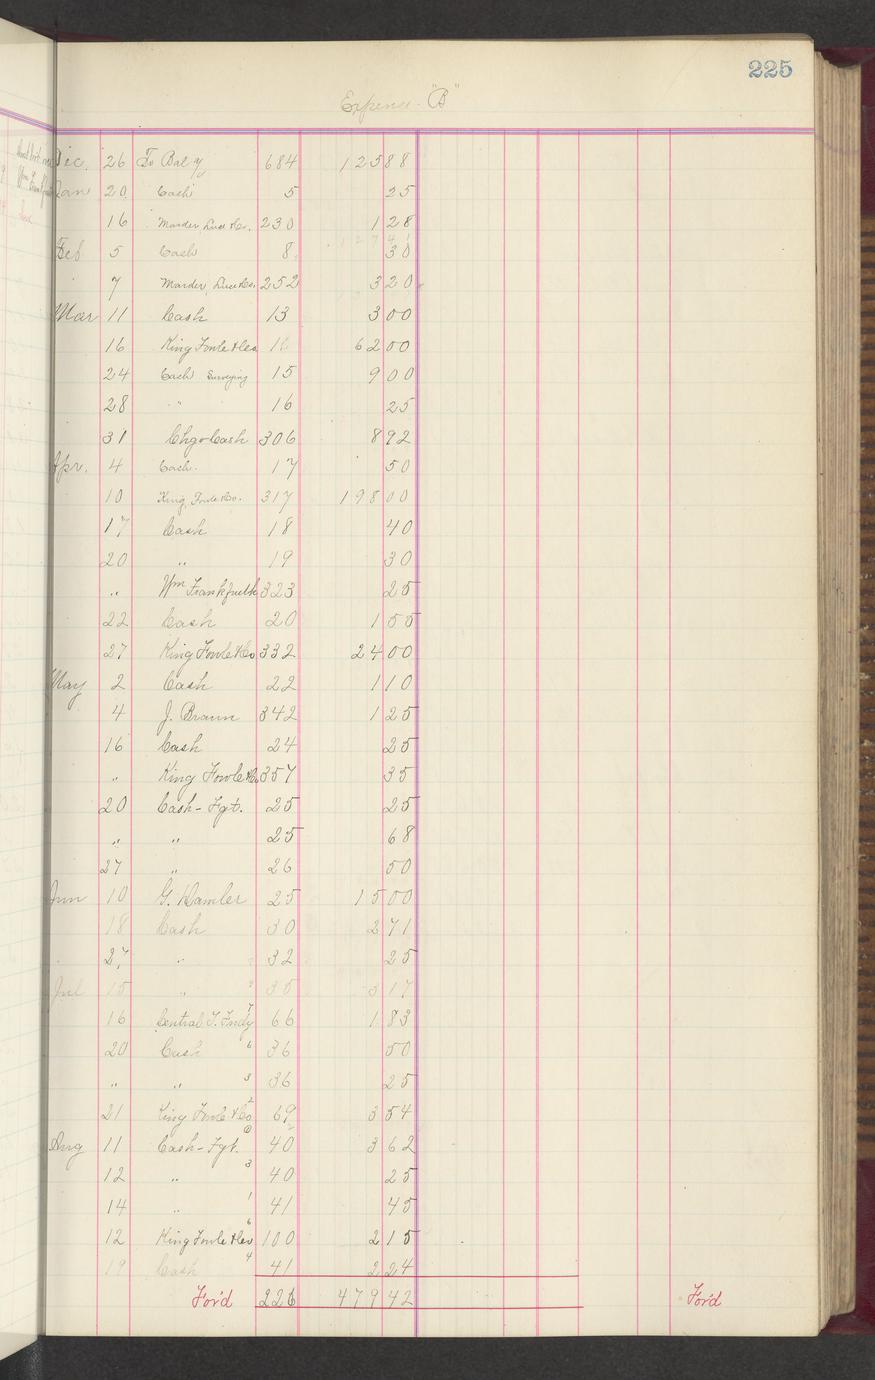 225
Expense "B"
Dec. 26 To Bal y 684 125 88
Jan 20 Cash 5 25
16 Marder, Luse & Co. 230 1 28
Feb 5 Cash 8 30
7 Marder, Luse & Co. 252 3 20
Mar 11 Cash 13 3 00
16 King Fowle & Co 62 00
24 Cash Surveying 15 9 00
28 " 16 25
31 Chgo Cash 306 8 92
Apr. 4 Cash. 17 50
10 King, Fowle & Co. 317 198 00
17 Cash 18 40
20 " 19 30
" Wm Frankfurth 323 25
22 Cash 20 1 55
27 King Fowle & Co 332 24 00
May 2 Cash 22 1 10
4 J. Braun 342 1 25
16 Cash 24 25
" King Fowle & Co 357 35
20 Cash - Fgt. 25 25
" " 25 68
27 " 26 50
Jun 10 G. Damler 25 15 00
18 Cash 30 2 71
27 " 32 25
Jul 15 " 35 3 17
16 Central T. Fndy 7 66 1 83
20 Cash 6 36 50
" " 3 36 25
21 King Fowle & Co 2 69 3 54
Aug 11 Cash - Fgt. 40 3 62
12 " 3 40 25
14 " 1 41 45
12 King Fowle & Co 6 100 2 15
19 Cash 4 41 2 24
For'd 226 479 42 For'd